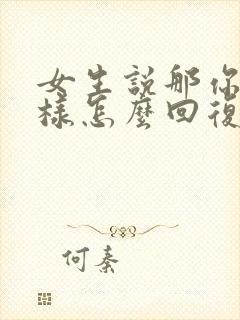 女生說那你
樣怎麼回復
何秦